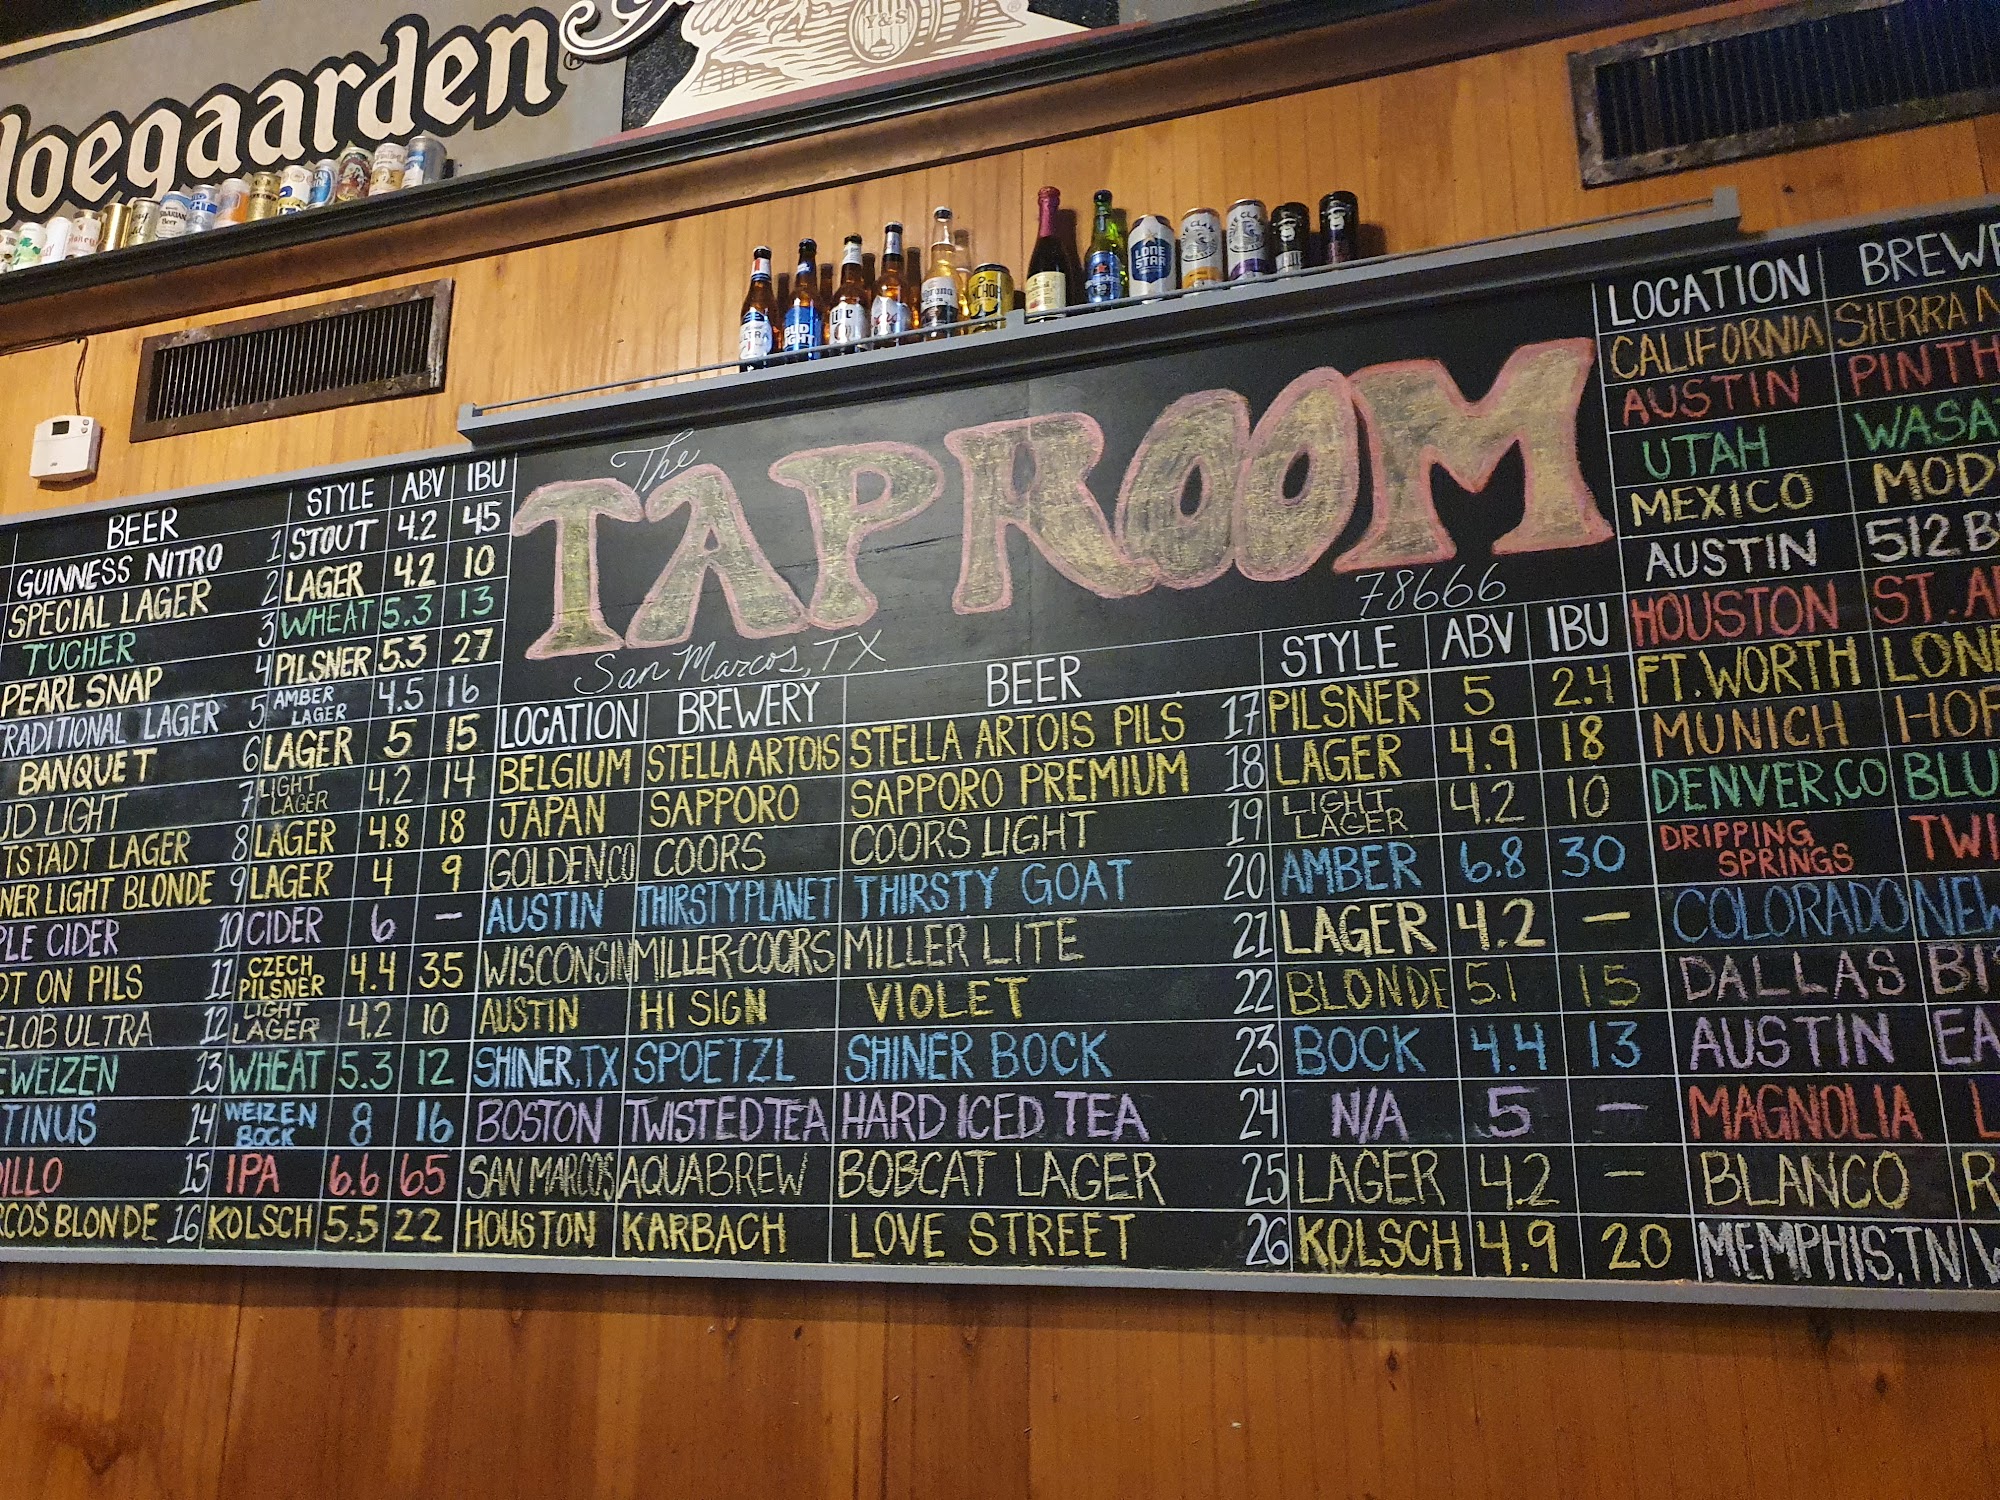 loegaarden
Y&S
The
TAPROOM
78666
San Marcos, TX
BEER STYLE ABV IBU
GUINNESS NITRO 1 STOUT 4.2 45
SPECIAL LAGER 2 LAGER 4.2 10
TUCHER 3 WHEAT 5.3 13
PEARL SNAP 4 PILSNER 5.3 27
TRADITIONAL LAGER 5 AMBER LAGER 4.5 16
BANQUET 6 LAGER 5 15
UD LIGHT 7 LIGHT LAGER 4.2 14
TSTADT LAGER 8 LAGER 4.8 18
NER LIGHT BLONDE 9 LAGER 4 9
PLE CIDER 10 CIDER 6 —
OT ON PILS 11 CZECH PILSNER 4.4 35
ELOB ULTRA 12 LIGHT LAGER 4.2 10
EWEIZEN 13 WHEAT 5.3 12
TINUS 14 WEIZEN BOCK 8 16
DILLO 15 IPA 6.6 65
RCOS BLONDE 16 KOLSCH 5.5 22
LOCATION BREWERY BEER STYLE ABV IBU
BELGIUM STELLA ARTOIS STELLA ARTOIS PILS 17 PILSNER 5 2.4
JAPAN SAPPORO SAPPORO PREMIUM 18 LAGER 4.9 18
GOLDEN,CO COORS COORS LIGHT 19 LIGHT LAGER 4.2 10
AUSTIN THIRSTY PLANET THIRSTY GOAT 20 AMBER 6.8 30
WISCONSIN MILLER-COORS MILLER LITE 21 LAGER 4.2 —
AUSTIN HI SIGN VIOLET 22 BLONDE 5.1 15
SHINER,TX SPOETZL SHINER BOCK 23 BOCK 4.4 13
BOSTON TWISTED TEA HARD ICED TEA 24 N/A 5 —
SAN MARCOS AQUABREW BOBCAT LAGER 25 LAGER 4.2 —
HOUSTON KARBACH LOVE STREET 26 KOLSCH 4.9 20
LOCATION BREWE
CALIFORNIA SIERRA N
AUSTIN PINTH
UTAH WASA
MEXICO MOD
AUSTIN 512 B
HOUSTON ST. A
FT. WORTH LONE
MUNICH HOF
DENVER,CO BLU
DRIPPING SPRINGS TWI
COLORADO NEW
DALLAS BI
AUSTIN EA
MAGNOLIA L
BLANCO R
MEMPHIS,TN W
BUD LIGHT
Lite
Corona
LONE STAR